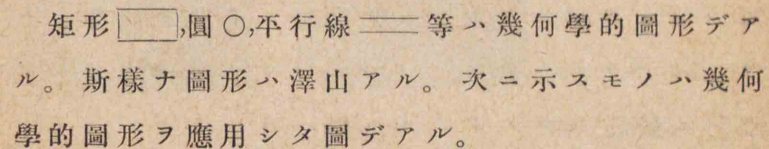 矩形▭,圓○,平行線＝等ハ幾何學的圖形デア
ル。斯樣ナ圖形ハ澤山アル。次ニ示スモノハ幾何
學的圖形ヲ應用シタ圖デアル。